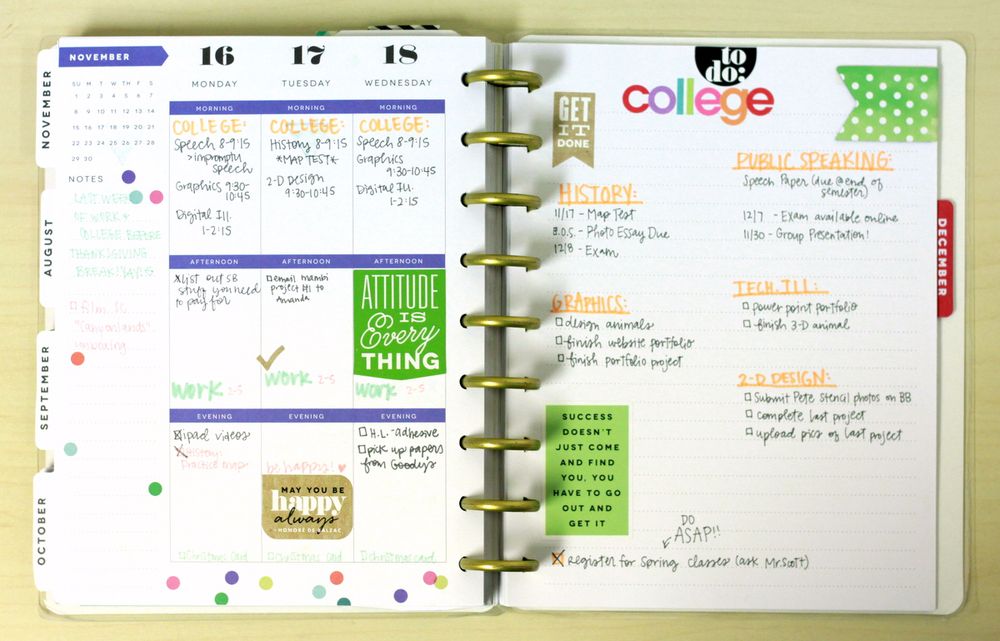 NOVEMBER
SU M T W T F S
1 2 3 4 5 6 7
8 9 10 11 12 13 14
15 16 17 18 19 20 21
22 23 24 25 26 27 28
29 30
NOTES
LAST WEEK
OF WORK &
COLLEGE BEFORE
THANKSGIVING
BREAK!
film SC
"Canyonlands"
unboxing
NOVEMBER
AUGUST
SEPTEMBER
OCTOBER
16
MONDAY
MORNING
COLLEGE:
Speech 8-9:15
>impromptu
speech
Graphics 9:30-
10:45
Digital Ill.
1-2:15
AFTERNOON
list out SB
stuff you need
to pay for
work 2-5
EVENING
ipad videos
History
Practice map
Christmas card
17
TUESDAY
MORNING
COLLEGE:
History 8-9:15
*MAP TEST*
2-D Design
9:30-10:45
AFTERNOON
email mambi
project #1 to
Amanda
work 2-5
EVENING
be happy!
MAY YOU BE
happy
always
HONORE DE BALZAC
Christmas card
18
WEDNESDAY
MORNING
COLLEGE:
Speech 8-9:15
Graphics
9:30-10:45
Digital Ill.
1-2:15
AFTERNOON
ATTITUDE
IS
Every
THING
work 2-5
EVENING
H.L. - adhesive
pick up papers
from Goody's
Christmas card
to
do:
college
GET
IT
DONE
HISTORY:
11/17 - Map Test
E.O.S. - Photo Essay Due
12/8 - Exam
GRAPHICS:
design animals
finish website portfolio
finish portfolio project
SUCCESS
DOESN'T
JUST COME
AND FIND
YOU, YOU
HAVE TO GO
OUT AND
GET IT
PUBLIC SPEAKING:
Speech Paper (due @ end of
semester)
12/7 - Exam available online
11/30 - Group Presentation!
TECH. ILL:
power point portfolio
finish 3-D animal
2-D DESIGN:
Submit Pete Stencil photos on BB
complete last project
upload pics of last project
DO
ASAP!!
Register for Spring classes (ask Mr. Scott)
DECEMBER